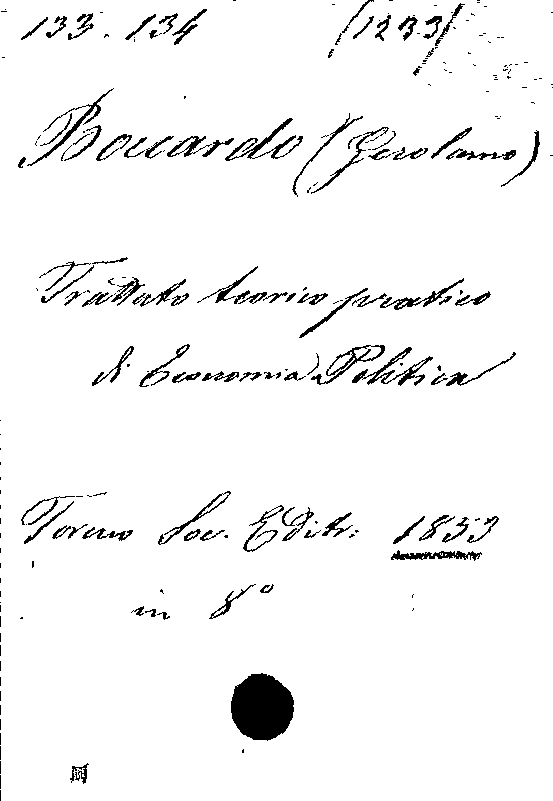 133. 134 (1233)
Boccardo (Gerolamo)
Trattato teorico pratico
di Economia Politica
Torino Soc. Editr: 1853
in 8°